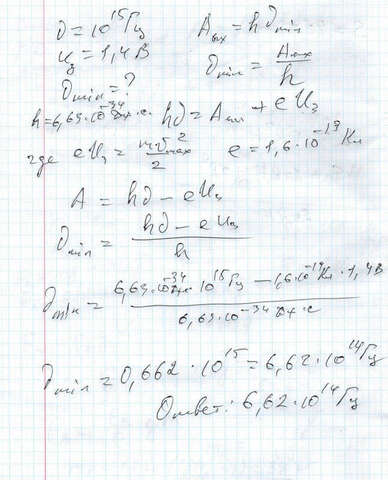 ν = 10¹⁵ Гц   Aвых = hνmin
Uз = 1,4 В   νmin = Aвых / h
νmin = ?
h = 6,63·10⁻³⁴ Дж·с.   hν = Aвых + eUз
где eUз = mv²max / 2   e = 1,6·10⁻¹⁹ Кл
A = hν − eUз
νmin = (hν − eUз) / h
νmin = (6,63·10⁻³⁴ Дж·с · 10¹⁵ Гц − 1,6·10⁻¹⁹ Кл · 1,4 В) / (6,63·10⁻³⁴ Дж·с)
νmin = 0,662·10¹⁵ = 6,62·10¹⁴ Гц
Ответ: 6,62·10¹⁴ Гц